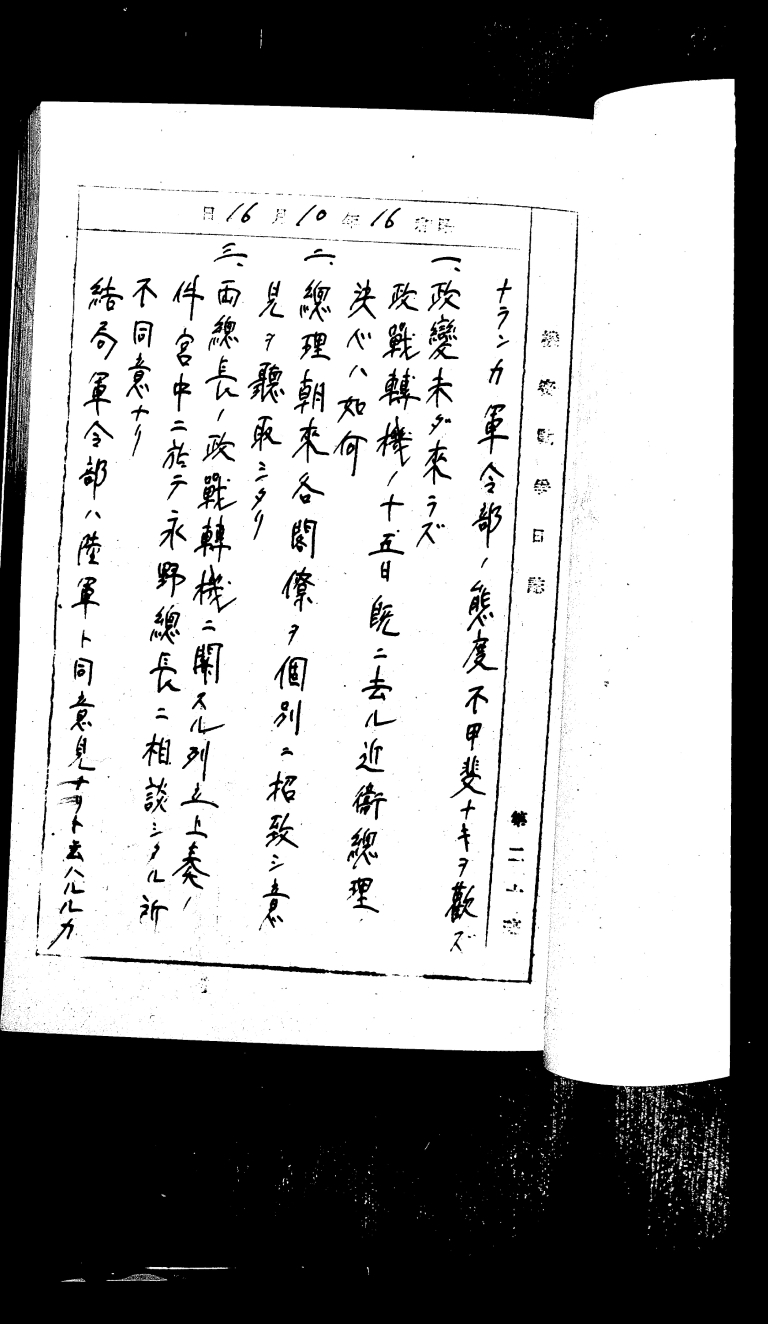 機密戰爭日誌
第二十班
昭和16年10月16日
ナランカ軍令部ノ態度不甲斐ナキヲ歎ズ
一、政變未ダ來ラズ
政戰轉機ノ十五日既ニ去ル近衞總理
決心ハ如何
二、總理朝來各閣僚ヲ個別ニ招致シ意
見ヲ聽取シタリ
三、両總長ノ政戰轉機ニ關スル列立上奏ノ
件宮中ニ於テ永野總長ニ相談シタル所
不同意ナリ
結局軍令部ハ陸軍ト同意見ト云ハルルカ